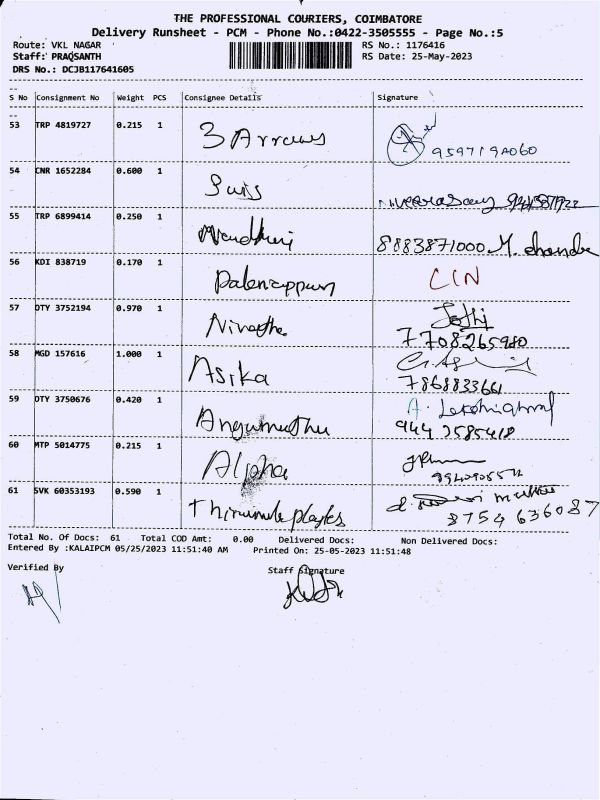 THE PROFESSIONAL COURIERS, COIMBATORE
Delivery Runsheet - PCM - Phone No.:0422-3505555 - Page No.:5
Route: VKL NAGAR RS No.: 1176416
Staff: PRAQSANTH RS Date: 25-May-2023
DRS No.: DCJB117641605
S No Consignment No Weight PCS Consignee Details Signature
53 TRP 4819727 0.215 1 3 Arrows
54 CNR 1652284 0.600 1
55 TRP 6899414 0.250 1 8883871000 M. chandra
56 KDI 838719 0.170 1 Palaniappan CIN
57 OTY 3752194 0.970 1 Jothi
7708265980
58 MGD 157616 1.000 1 Asika
7868833661
59 OTY 3750676 0.420 1 Angumuthu A.
60 MTP 5014775 0.215 1 Alpha
61 SVK 60353193 0.590 1
8754636087
Total No. Of Docs: 61 Total COD Amt: 0.00 Delivered Docs: Non Delivered Docs:
Entered By :KALAIPCM 05/25/2023 11:51:40 AM Printed On: 25-05-2023 11:51:48
Verified By Staff Signature